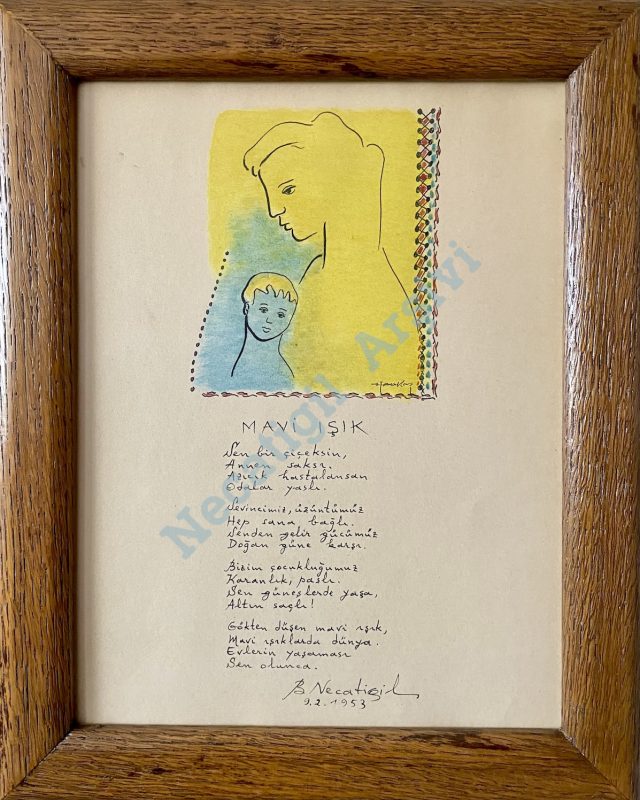 MAVİ IŞIK
Sen bir çiçeksin,
Annen saksı.
Azıcık hastalansan
Odalar yaslı.
Sevincimiz, üzüntümüz
Hep sana bağlı.
Senden gelir gücümüz
Doğan güne karşı.
Bizim çocukluğumuz
Karanlık, paslı.
Sen güneşlerde yaşa,
Altın saçlı!
Gökten düşen mavi ışık,
Mavi ışıklarda dünya.
Evlerin yaşaması
Sen olunca.
B Necatigil
9.2.1953
Necatigil Arşivi